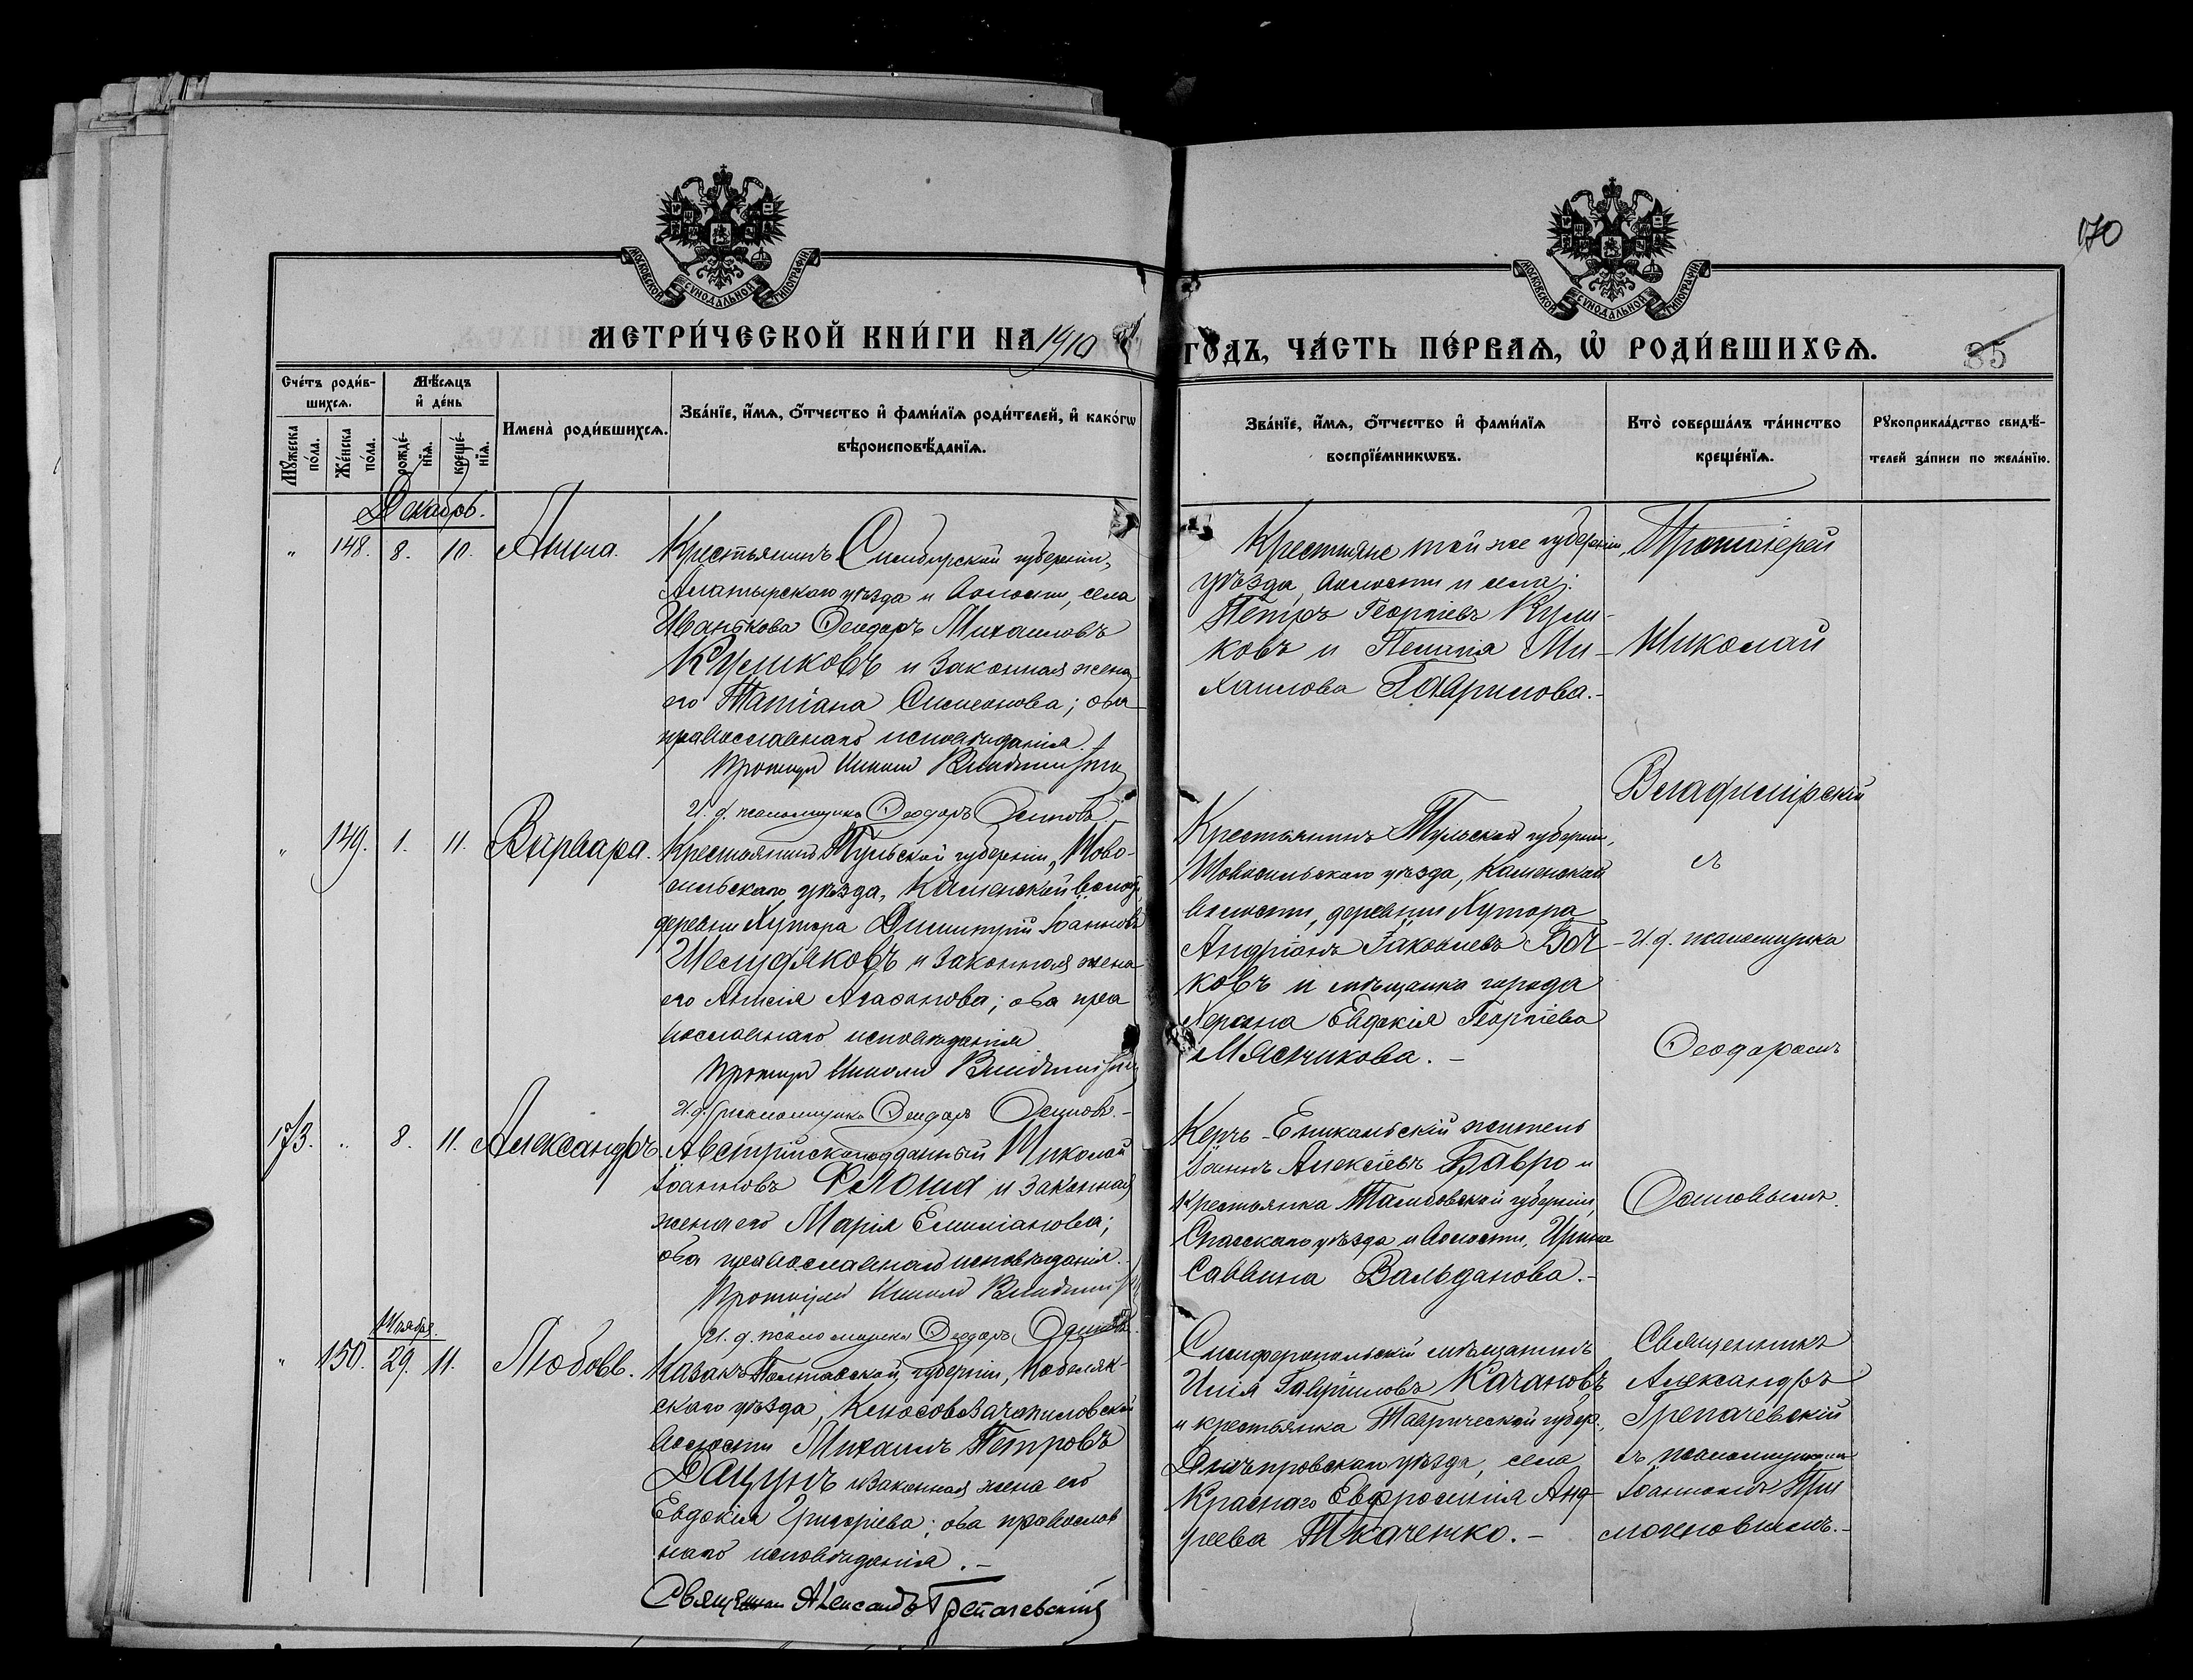 170
МОСКОВСКОЙ СѴНОДАЛЬНОЙ ТИПОГРАФІИ
МОСКОВСКОЙ СѴНОДАЛЬНОЙ ТИПОГРАФІИ
МЕТРИ́ЧЕСКОЙ КНИ́ГИ НА 1910
ГО́ДЪ, ЧА́СТЬ ПЕ́РВАѦ, Ѡ РОДИ́ВШИХСѦ.
85
Сче́тъ роди́в-
шихсѧ.
Мѣ́сѧцъ
и҆ де́нь
Мꙋ́жеска
по́ла.
Же́нска
по́ла.
рожде́-
нїѧ.
креще́-
нїѧ.
Имена̀ роди́вшихсѧ.
Зва́нїе, и҆́мѧ, о҆́тчество и҆ фами́лїѧ роди́телей, и҆ како́гѡ
вѣроисповѣ́данїѧ.
Зва́нїе, и҆́мѧ, о҆́тчество и҆ фами́лїѧ
воспрїе́мникѡвъ.
Кто̀ соверша́лъ та́инство
креще́нїѧ.
Рꙋкоприкла́дство свидѣ́-
телей за́писи по жела́нїю.
Декабрь.
" 148. 8. 10. Анна.
Крестьянинъ Симбирской губерніи,
Алатырскаго уѣзда и волости, села
Иванькова Ѳеодоръ Михаиловъ
Куликовъ и законная жена
его Татіана Симеонова; оба
православнаго исповѣданія.
Протоіерей Николай Владимірскій
И. д. псаломщика Ѳеодоръ Осиповъ.
Крестьяне той же губерніи,
уѣзда, волости и села:
Петръ Георгіевъ Кули-
ковъ и Пелагія Ми-
хаилова Гаврилова.-
Протоіерей
Николай
Владимірскій
съ
И. д. псаломщика
Ѳеодоромъ
Осиповымъ.
" 149. 1. 11. Варвара.
Крестьянинъ Тульской губерніи, Ново-
сильскаго уѣзда, Каменской волости,
деревни Хутора Димитрій Іоанновъ
Шелудяковъ и законная жена
его Анисія Агафонова; оба пра
вославнаго исповѣданія
Протоіерей Николай Владимірскій
И. д. псаломщика Ѳеодоръ Осиповъ.-
Крестьянинъ Тульской губерніи,
Новосильскаго уѣзда, Каменской
волости, деревни Хутора
Андріанъ Іаковлевъ Боч-
ковъ и мѣщанка города
Херсона Евдокія Георгіева
Мясникова.-
173. " 8. 11. Александръ.
Австрійскоподданный Николай
Іоанновъ и законная
жена его Марія Емиліанова;
оба православнаго исповѣданія.-
Протоіерей Николай Владимірскій
И. д. псаломщика Ѳеодоръ Осиповъ.
Керчь-Еникальскій житель
Іоаннъ Алексіевъ Бавро и
крестьянка Тамбовской губерніи,
Спасскаго уѣзда и волости, Ирина
Саввина Вальданова.-
Ноября.
" 150. 29. 11. Любовь.
Казакъ Полтавской губерніи, Кобеляк-
скаго уѣзда,
волости Михаилъ Петровъ
Дацунъ и законная жена его
Евдокія Григоріева; оба православ
наго исповѣданія.-
Священникъ Александръ Грепачевскій
Симферопольскій мѣщанинъ
Илія Гавріиловъ Качановъ
и крестьянка Таврической губер.,
Днѣпровскаго уѣзда, села
Краснаго Евфросинія Анд-
реева Ткаченко.-
Священникъ
Александръ
Грепачевскій
съ псаломщикомъ
Іоанномъ